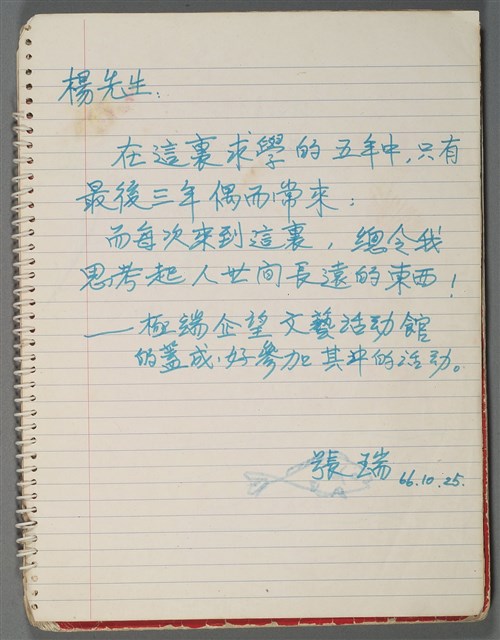 楊先生：
在這裏求學的五年中，只有
最後三年偶而常來；
而每次來到這裏，總令我
思考起人世间長遠的東西！
——極端企望文藝活动館
的蓋成，好參加其中的活动。
張瑞 66.10.25.